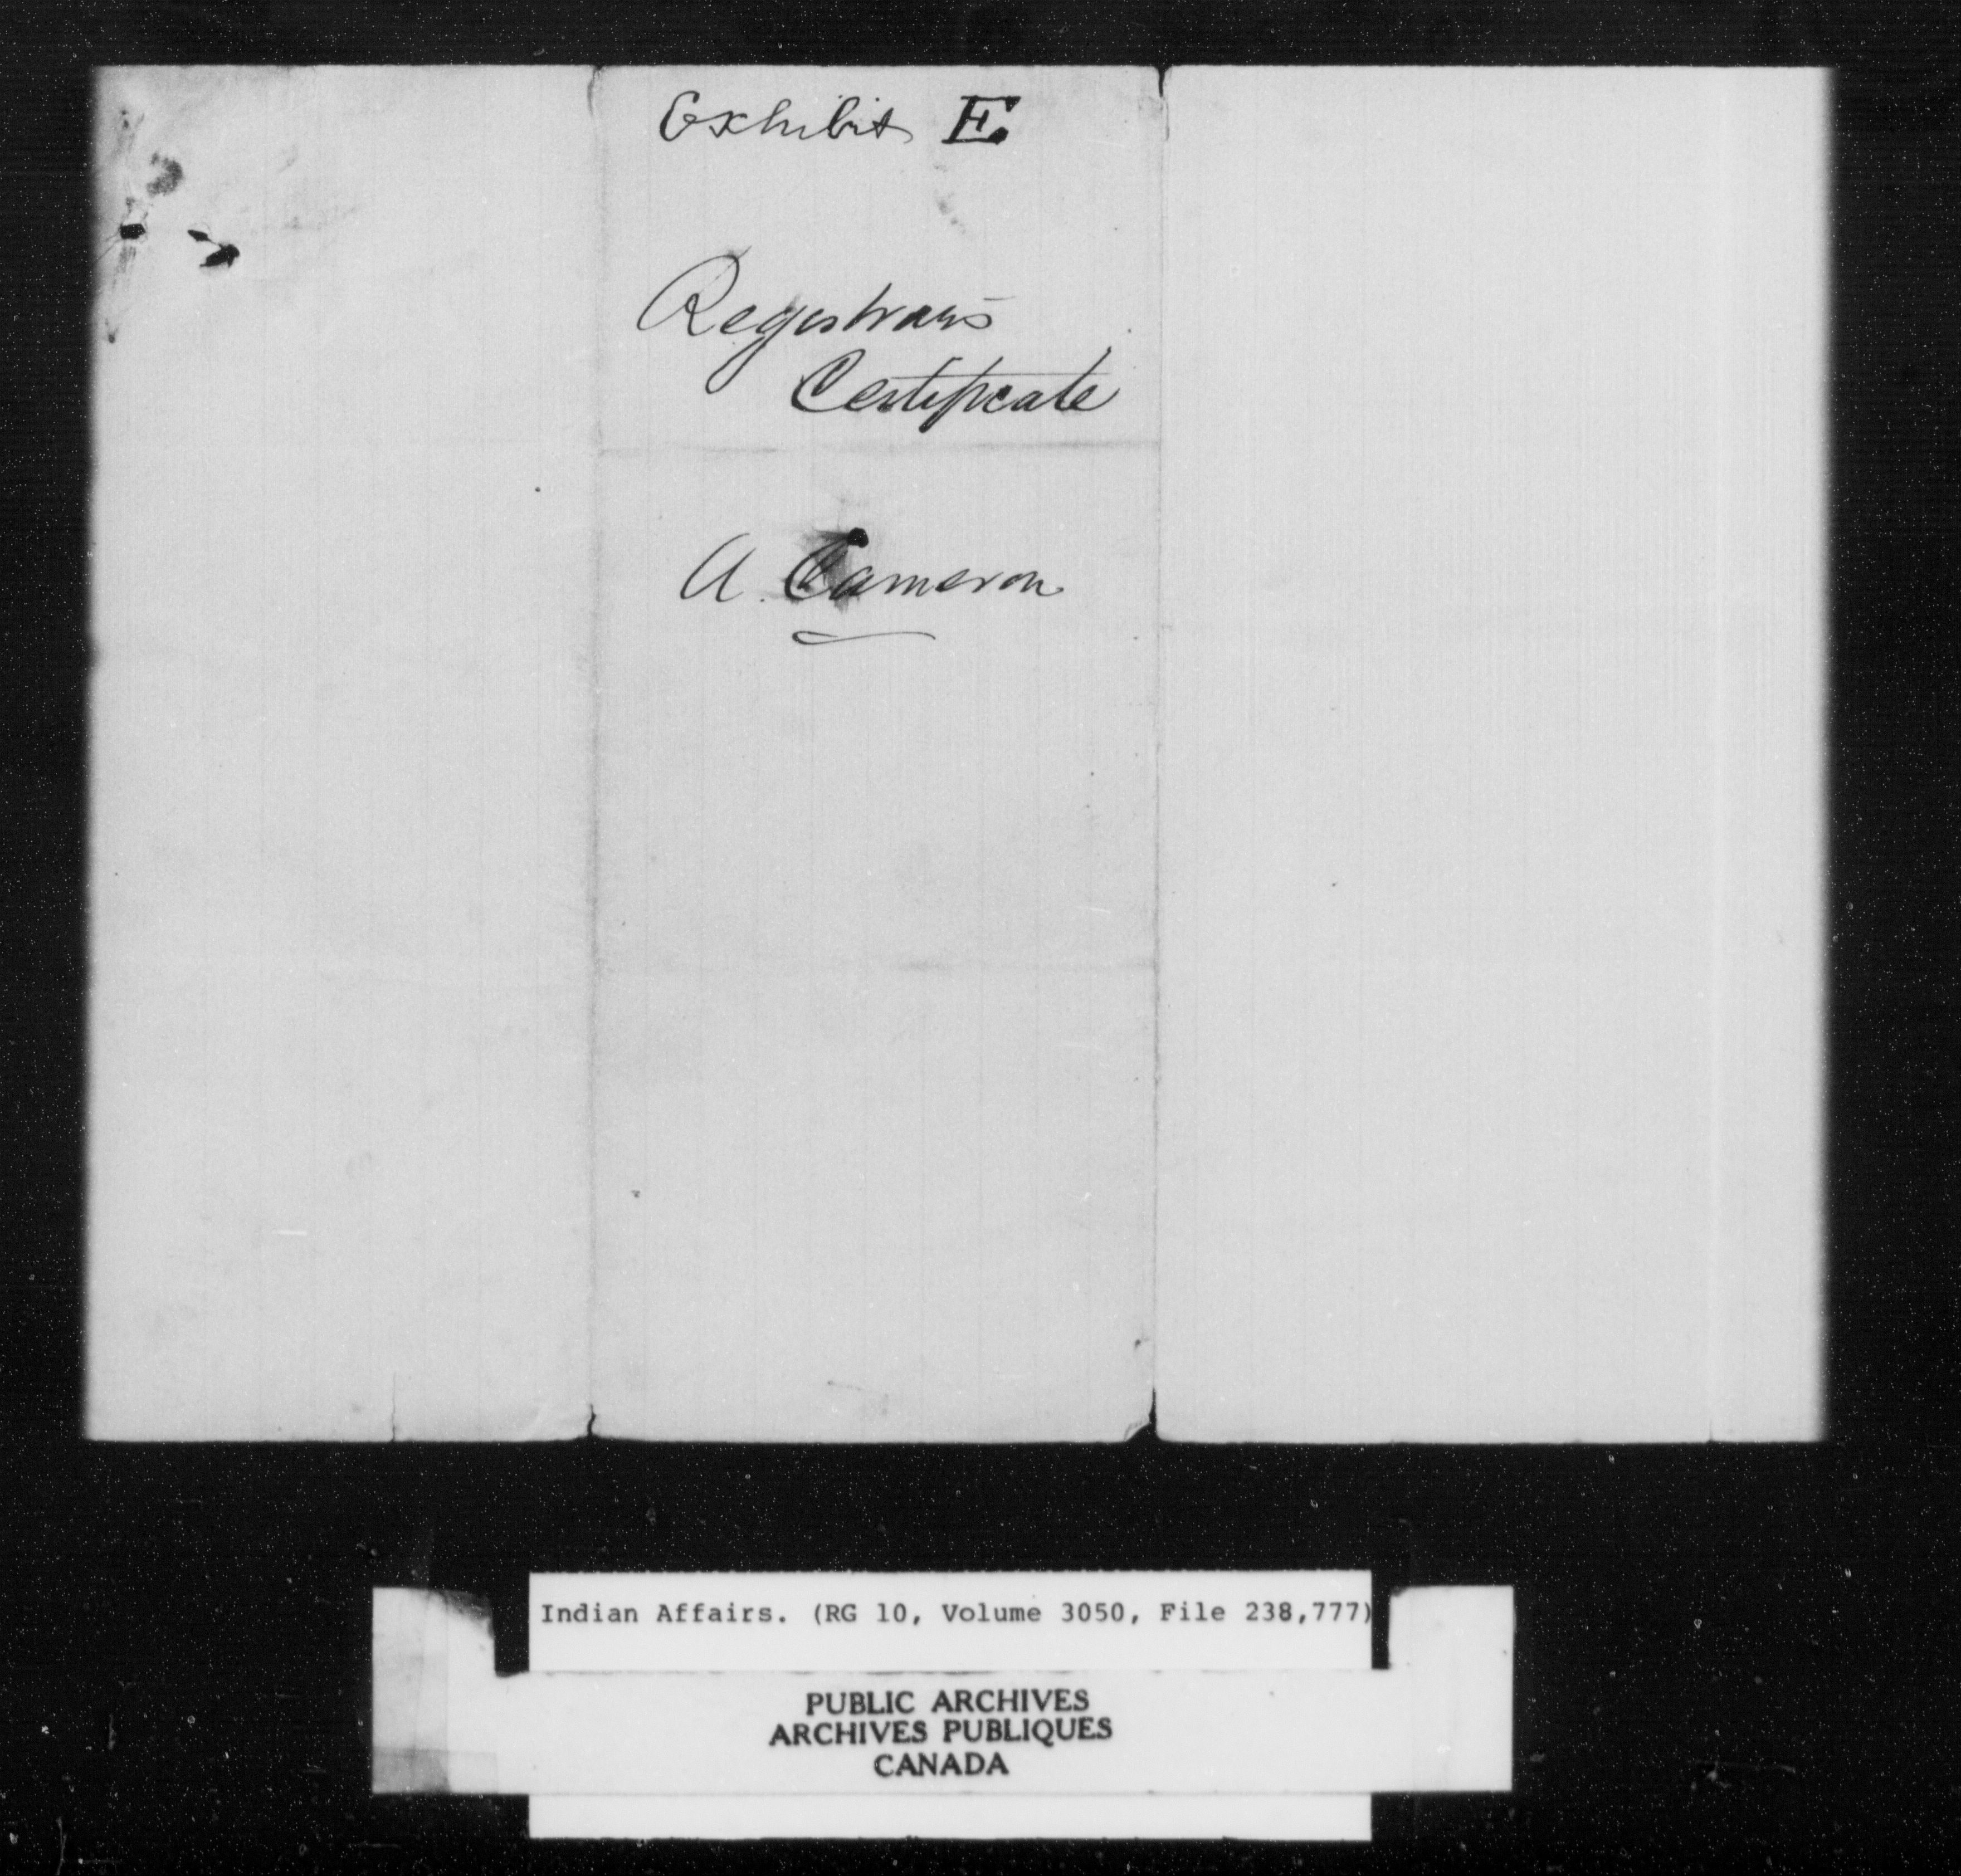 Exhibit E.
Registrar's
Certificate
A. Cameron
Indian Affairs. (RG 10, Volume 3050, File 238,777)
PUBLIC ARCHIVES
ARCHIVES PUBLIQUES
CANADA